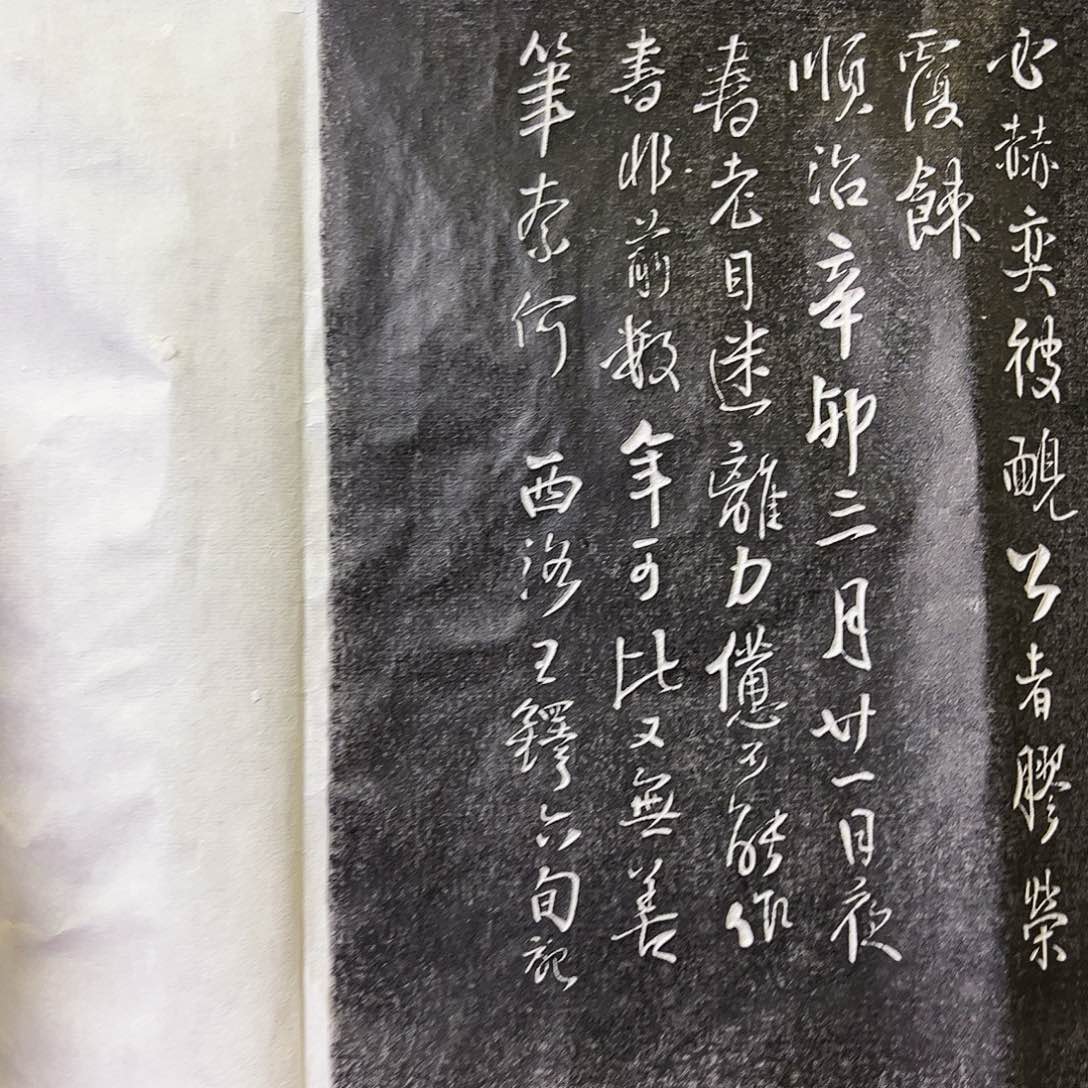 赫奕彼醜公者膠榮
覆餗
順治辛卯三月廿一日夜
書老目迷離力憊不能作
書非前數年可比又無善
筆奈何 西洛王鐸六旬記